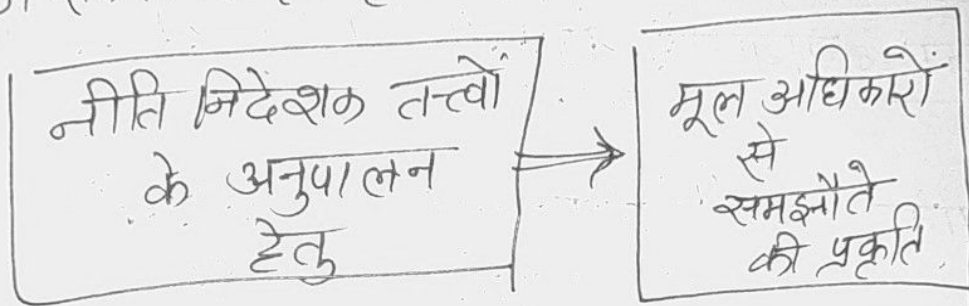 नीति निदेशक तत्त्वों
के अनुपालन
हेतु
मूल अधिकारों
से
समझौते
की प्रकृति